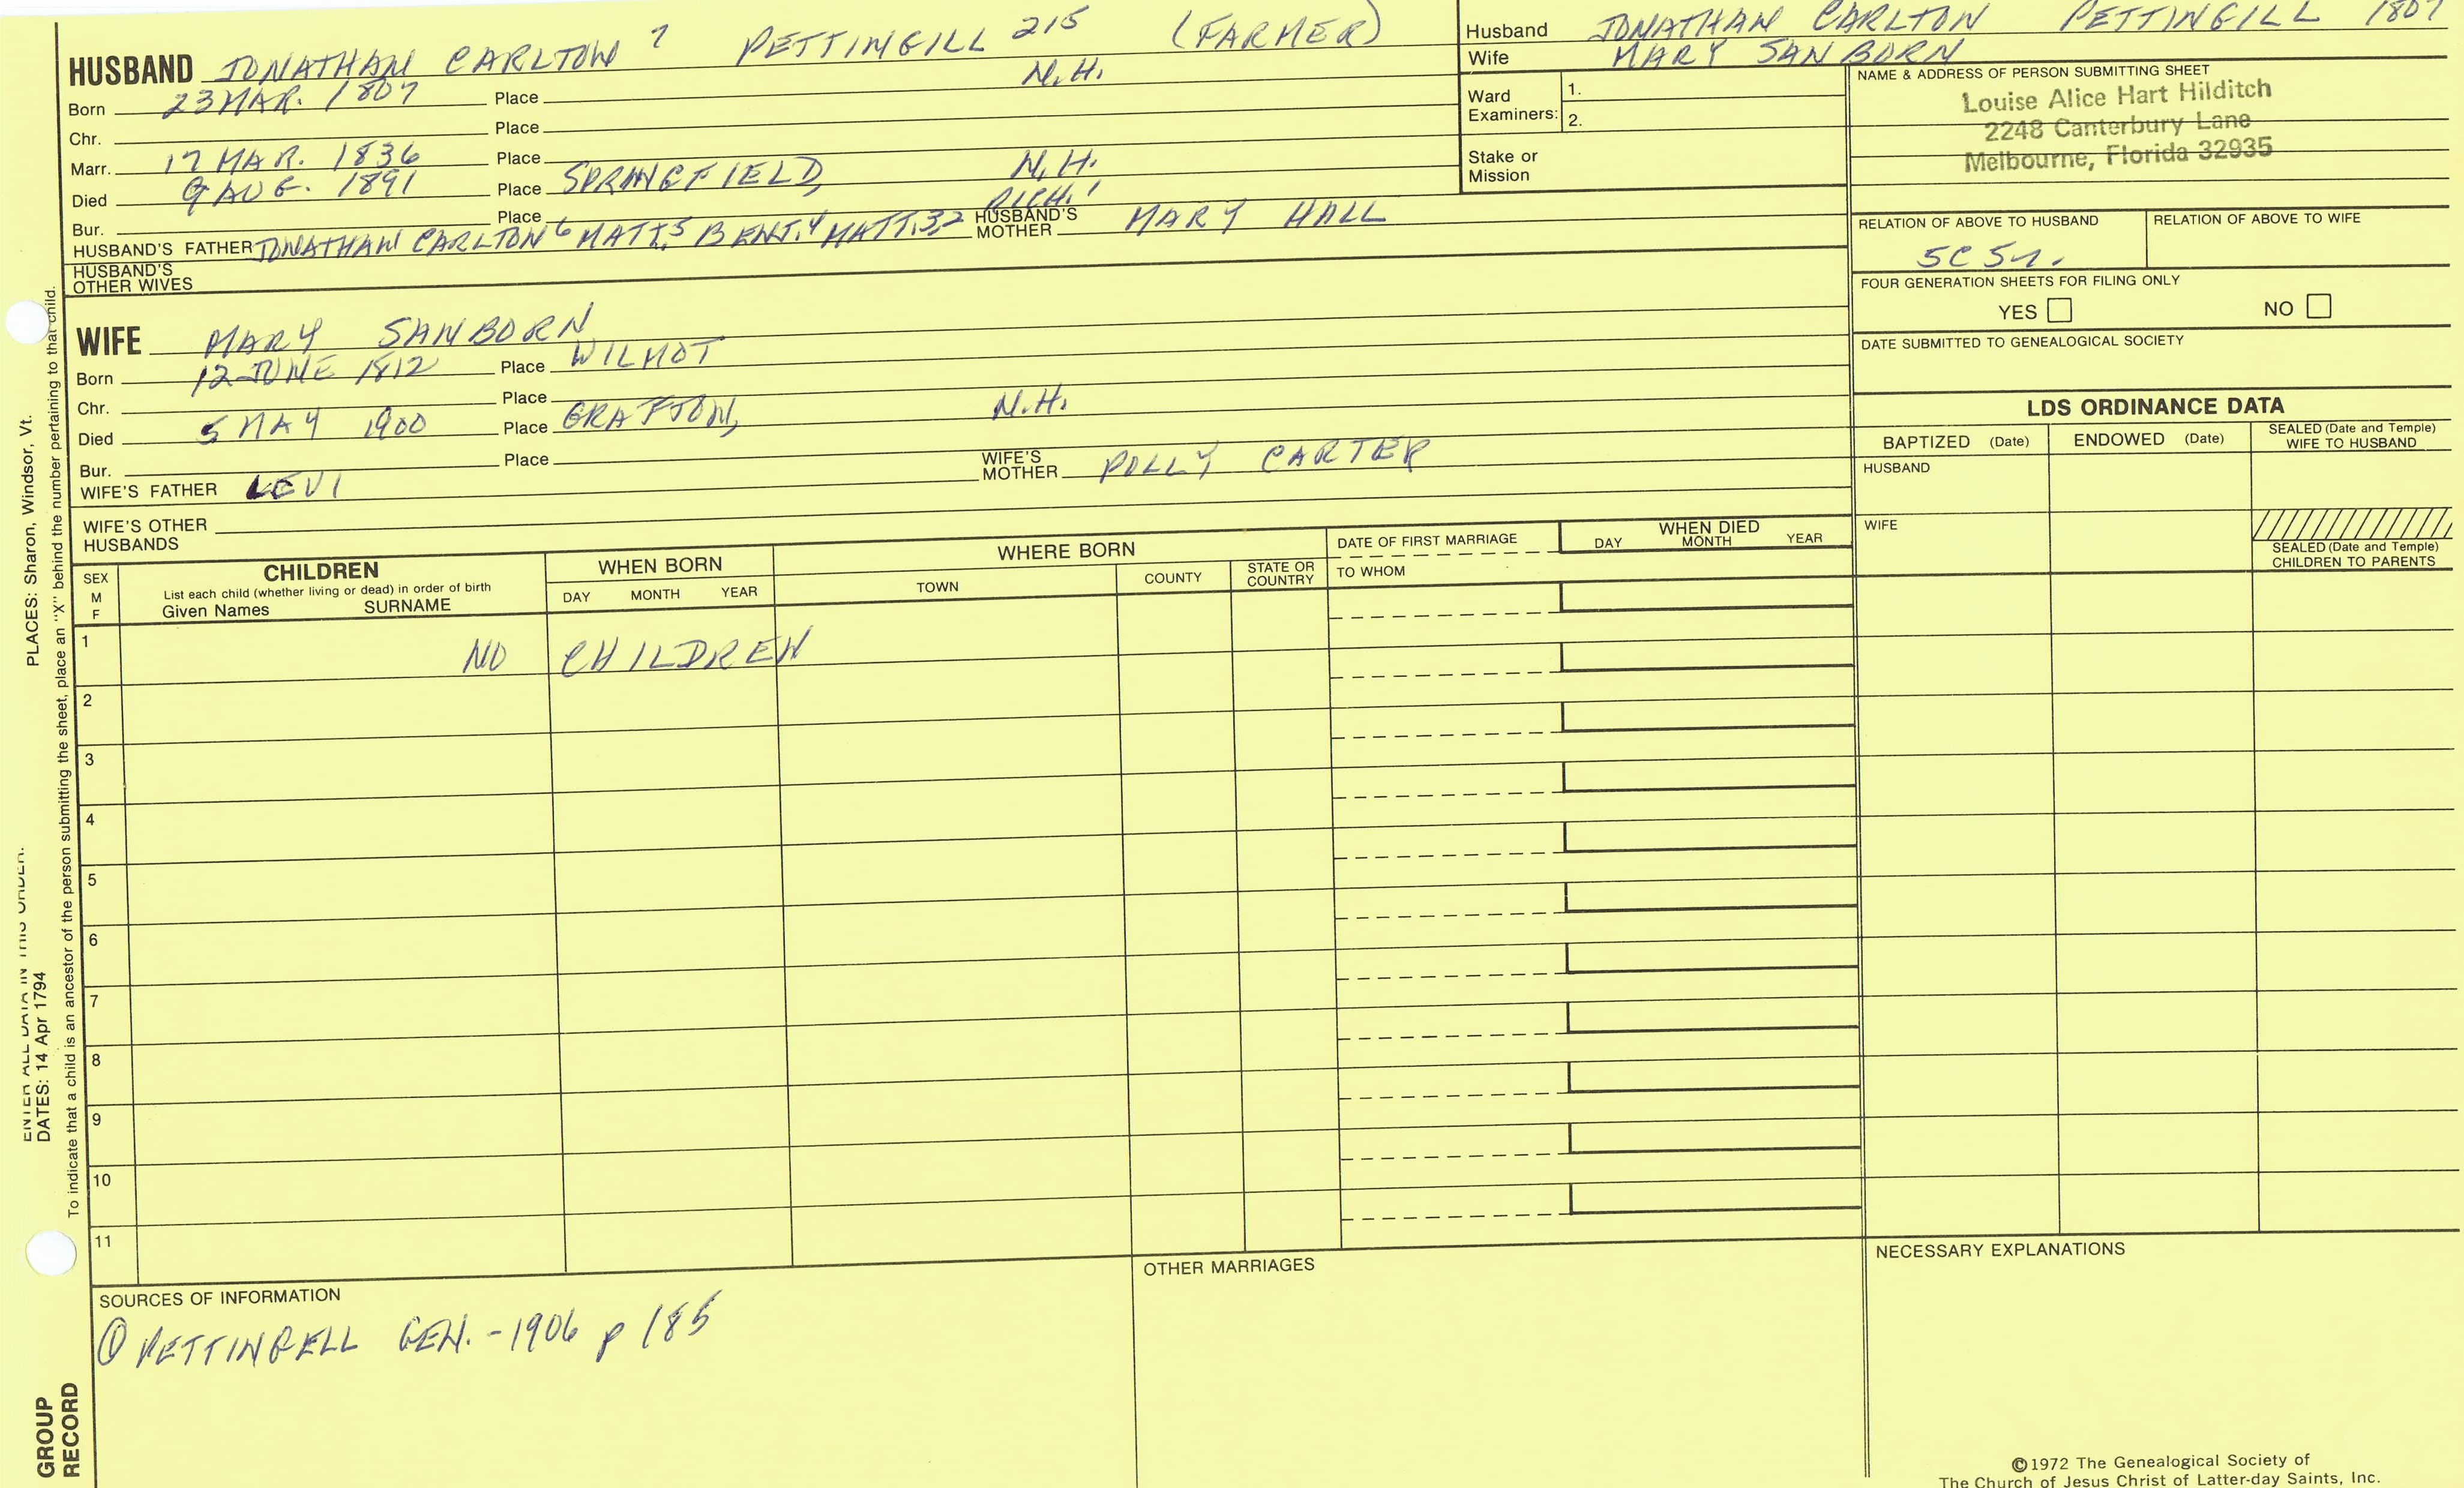 HUSBAND JONATHAN CARLTON 7 PETTINGILL 215 (FARMER)
Born 23 MAR. 1807 Place N.H.
Chr. Place
Marr. 17 MAR. 1836 Place
Died 9 AUG. 1891 Place SPRINGFIELD, N.H.
Bur. Place RICH.1
HUSBAND'S FATHER JONATHAN CARLTON 6 MATT.5 BENJ.4 MATT.3,2 HUSBAND'S MOTHER MARY HALL
HUSBAND'S OTHER WIVES
WIFE MARY SANBORN
Born 12 JUNE 1812 Place WILMOT
Chr. Place
Died 5 MAY 1900 Place GRAFTON, N.H.
Bur. Place
WIFE'S FATHER LEVI WIFE'S MOTHER POLLY CARTER
WIFE'S OTHER HUSBANDS
Husband JONATHAN CARLTON PETTINGILL 1807
Wife MARY SANBORN
Ward Examiners: 1.
2.
Stake or Mission
NAME & ADDRESS OF PERSON SUBMITTING SHEET
Louise Alice Hart Hilditch
2248 Canterbury Lane
Melbourne, Florida 32935
RELATION OF ABOVE TO HUSBAND RELATION OF ABOVE TO WIFE
5C 5r.
FOUR GENERATION SHEETS FOR FILING ONLY
YES NO
DATE SUBMITTED TO GENEALOGICAL SOCIETY
LDS ORDINANCE DATA
BAPTIZED (Date) ENDOWED (Date) SEALED (Date and Temple) WIFE TO HUSBAND
HUSBAND
WIFE
SEALED (Date and Temple)
CHILDREN TO PARENTS
SEX M F
CHILDREN
List each child (whether living or dead) in order of birth
Given Names SURNAME
WHEN BORN
DAY MONTH YEAR
WHERE BORN
TOWN COUNTY STATE OR COUNTRY
DATE OF FIRST MARRIAGE
TO WHOM
WHEN DIED
DAY MONTH YEAR
1 NO CHILDREN
2
3
4
5
6
7
8
9
10
11
SOURCES OF INFORMATION
① PETTINGELL GEN. - 1906 p 185
OTHER MARRIAGES
NECESSARY EXPLANATIONS
©1972 The Genealogical Society of
The Church of Jesus Christ of Latter-day Saints, Inc.
ENTER ALL DATA IN THIS ORDER:
DATES: 14 Apr 1794 PLACES: Sharon, Windsor, Vt.
To indicate that a child is an ancestor of the person submitting the sheet, place an "X" behind the number pertaining to that child.
GROUP
RECORD